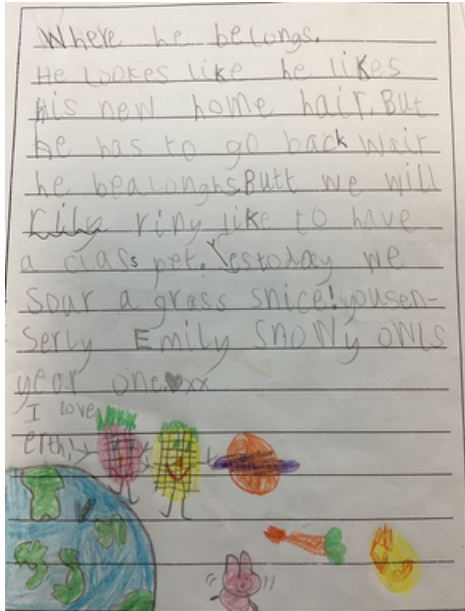 Where he belongs.
He lookes like he likes
his new home hair. But
he has to go back wair
he bealonghs. Butt we will
riny like to have
a class pet. Yestoday we
sour a grass snice! yousen-
serly Emily Snowy owls
year one ♥xx
I love
erth!